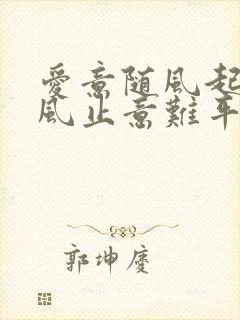 愛意随風起
風止意難平
郭坤慶